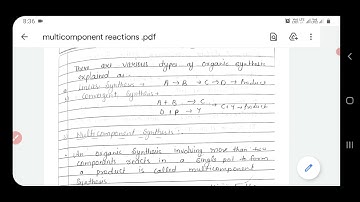 8:36
multicomponent reactions .pdf
There are various types of organic synthesis
explained as..
Linear Synthesis → A → B → C → D → Product
Convergent Synthesis →
A + B → C
C + Y → Product
D + P → Y
Multicomponent Synthesis :
An organic synthesis involving more than two
components reacts in a single pot to form
a product is called multicomponent
synthesis